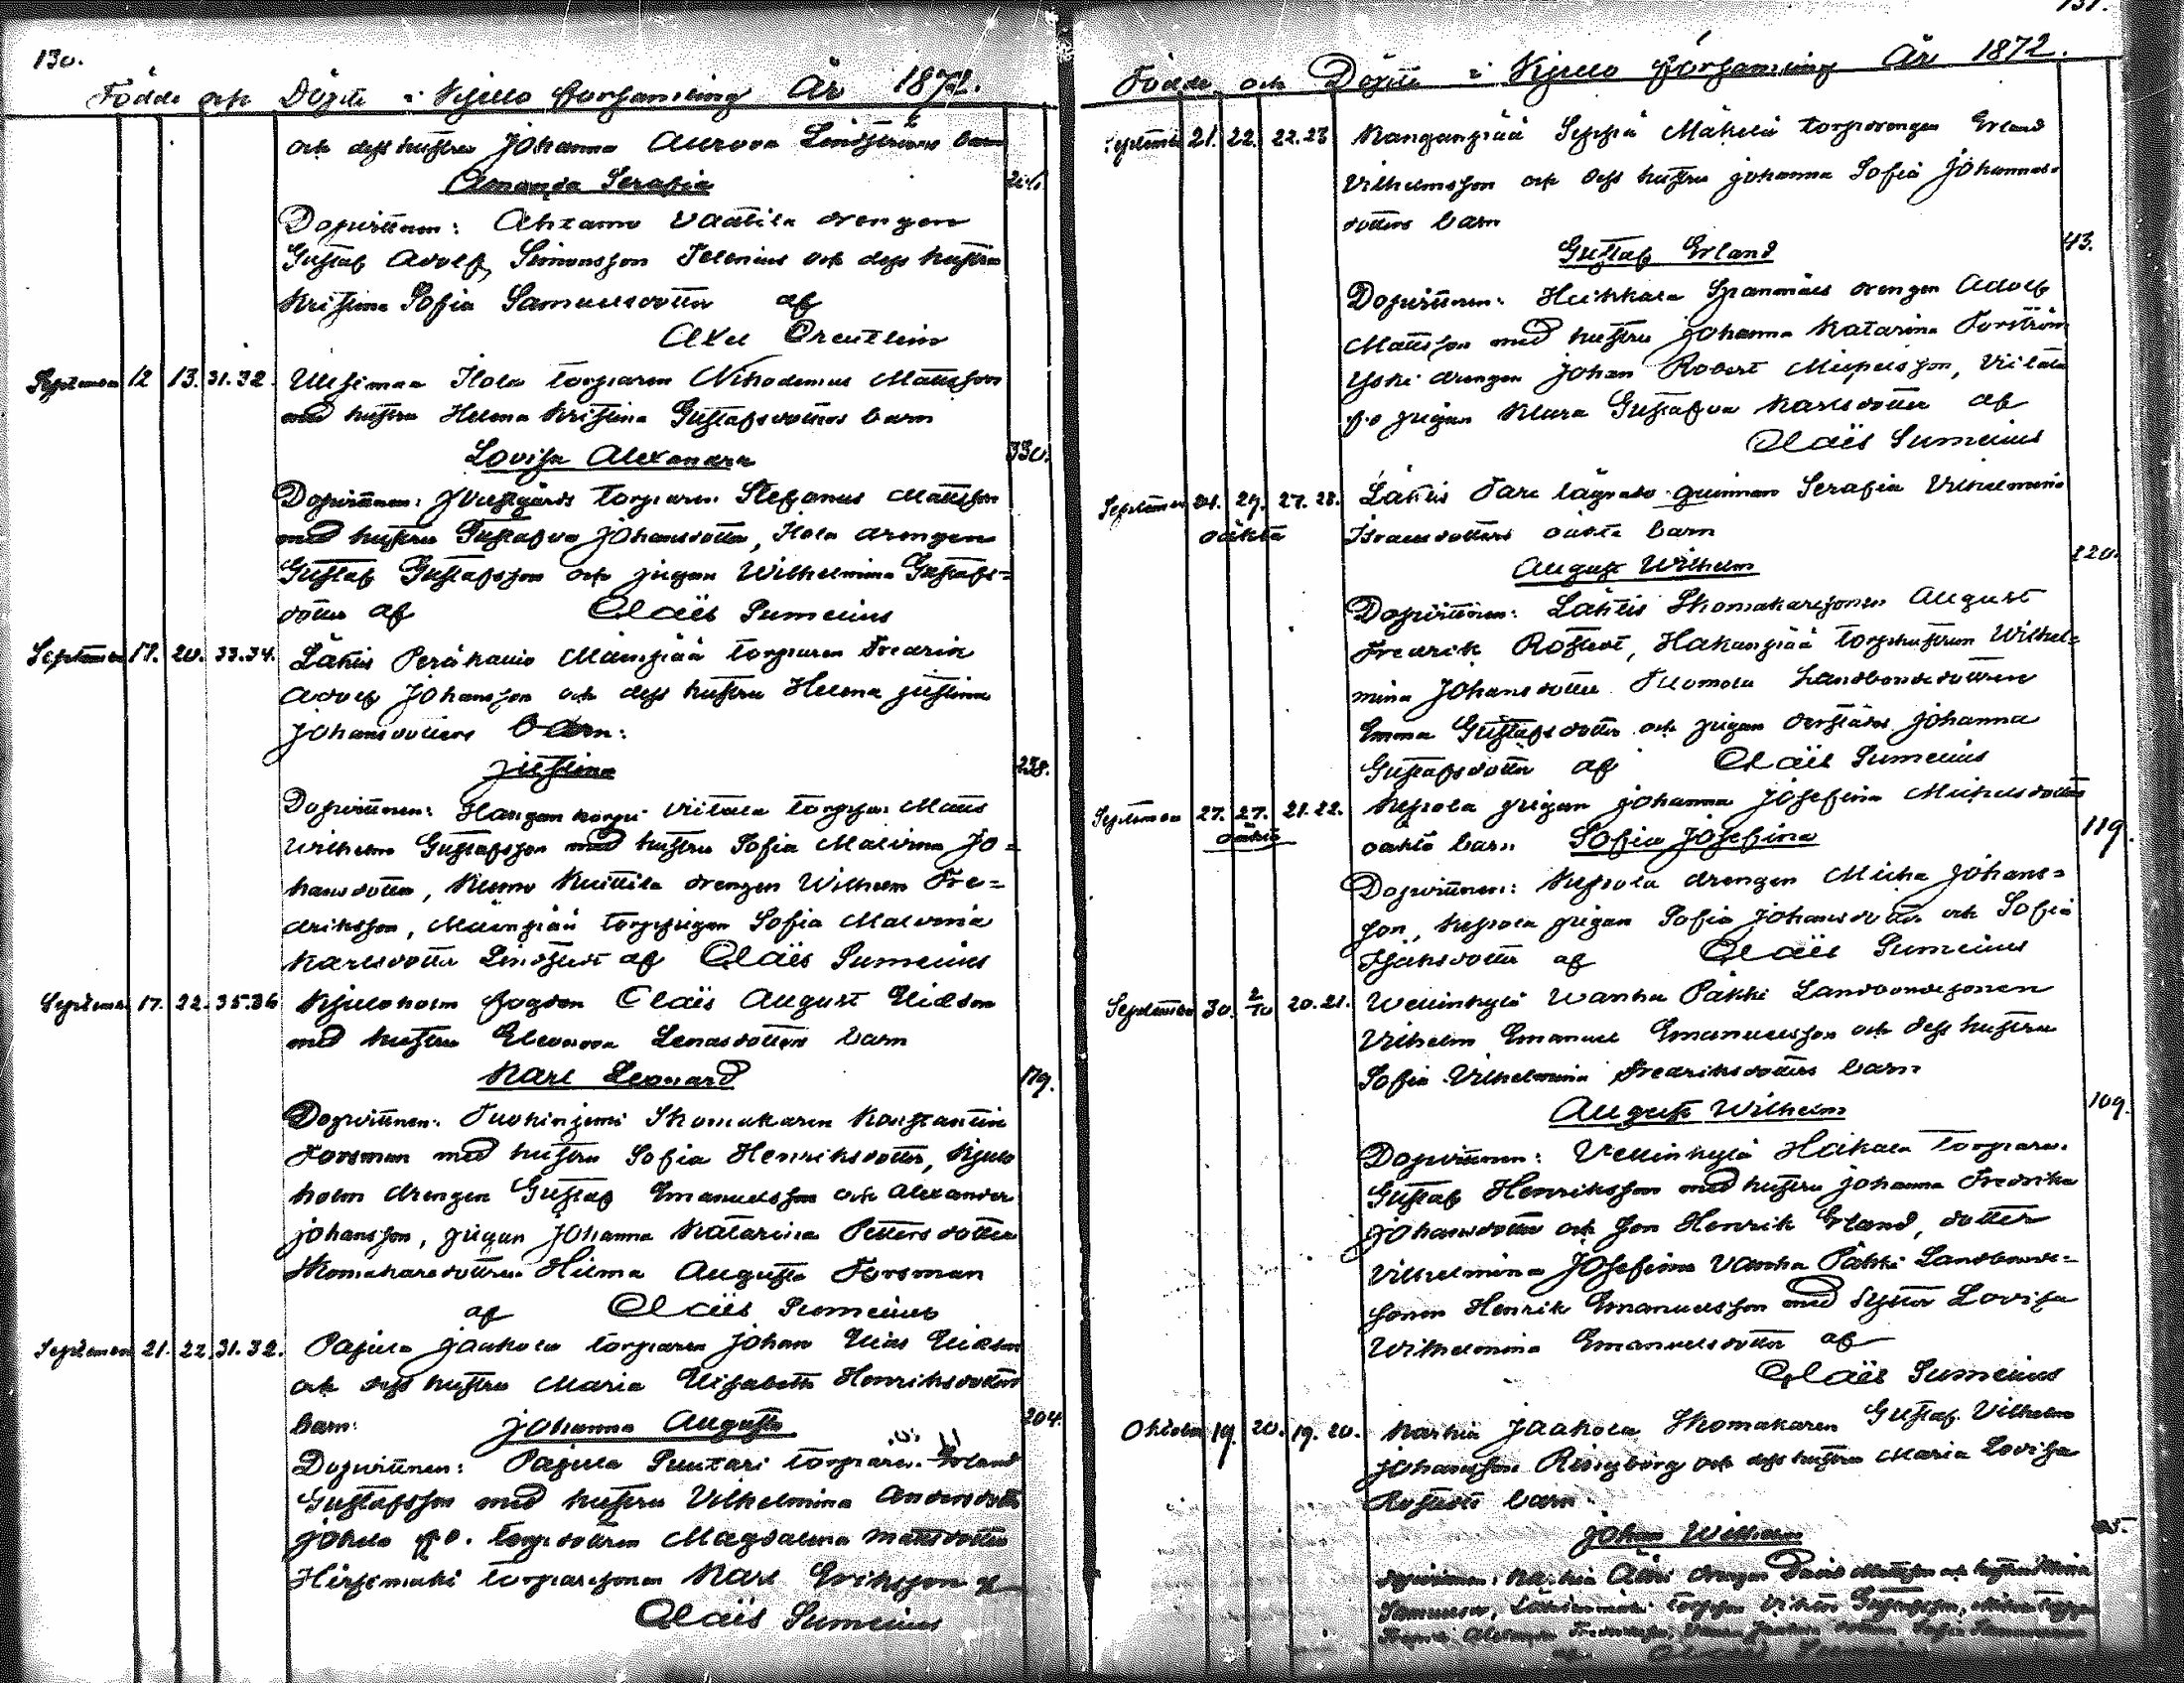 130.
Födde och Döpte i Kjulo församling År 1872.
och dess hustru Johanna Aurora Lindströms barn
Amanda Serafia
Dopvittnen: Ahtamo Vaatila drengen
Gustaf Adolf Simonsson Telenius och dess hustru
Kristina Sofia Samuelsdotter af
Axel Oreutlein
September 12 13. 31.32. Uusimaa Ilola torparen Nikodemus Mattsson
med hustru Helena Kristina Gustafsdotters barn
Lovisa Alexandra 330.
Dopvittnen: torparen Stefanus Mattsson
med hustru Gustafva Johansdotter, Ilola drengen
Gustaf Gustafsson och pigan Wilhelmina Gustafs=
dotter af Claës Sumelius
September 17. 20. 33.34. Lähtis Perähauio Mäenpää torparen Fredrik
Adolf Johansson och dess hustru Helena Justina
Johansdotters barn:
Justina 238.
Dopvittnen: Hangankorpi Viitala Matts
Wilhelm Gustafsson med hustru Sofia Malvina Jo=
hansdotter, Kuittila drengen Wilhelm Fre=
driksson, Mäenpää torppigan Sofia Malvina
Karlsdotter Lindstedt af Claës Sumelius
September 17. 22. 35.36 Kjuloholm fogden Claës August Elidson
med hustru Eleonora Lenasdotters barn
Karl Leonard 179.
Dopvittnen: Tuohiniemi Skomakaren Konstantin
Forsman med hustru Sofia Henriksdotter, Kjulo
holm drengen Gustaf Emanuelsson och Alexander
Johansson, pigan Johanna Katarina Pettersdotter
Skomakaredottren Hilma Augusta Forsman
af Claës Sumelius
September 21. 22. 31.32. Pajula Jaakola torparen Johan Elias Elidson
och dess hustru Maria Elisabeth Henriksdotters
barn: Johanna Augusta 204.
Dopvittnen: Pajula Puutari torparen Erland
Gustafsson med hustru Vilhelmina Andersdotter
f.o. torpdottren Magdalena Mattsdotter
Hirsimäki torparesonen Karl Eriksson af
Claës Sumelius
131.
Födde och Döpte i Kjulo församling År 1872.
September 21. 22. 22.23 Kanganpää Seppä Mäkelä torpdrengen Erland
Vilhelmsson och dess hustru Johanna Sofia Johannes-
dotters barn
Gustaf Erland 43.
Dopvittnen: Heikkala drengen Adolf
Mattsson med hustru Johanna Katarina Forström
Yski drengen Johan Robert Mickelsson, Viitala
f.o. pigan Klara Gustafva Karlsdotter af
Claës Sumelius
September 24. 29. 27.28. Lähtis Tare lägrade quinnan Serafia Vilhelmina
oäkta Israelsdotters oäkta barn
August Wilhelm 220.
Dopvittnen: Lähtis Skomakaresonen August
Fredrik Rostedt, Hakanpää torphustrun Wilhel=
mina Johansdotter Tuomola Landbondedottren
Emma Gustafsdotter och pigan derstädes Johanna
Gustafsdotter af Claës Sumelius
September 27. 27. 21.22. Kepola pigan Johanna Josefina Mickelsdotters
oäkta oäkta barn Sofia Josefina 119.
Dopvittnen: Kepola drengen Micha Johans=
son, Kepola pigan Sofia Johansdotter och Sofia
Isaksdotter af Claës Sumelius
September 30. 2/10 20.21. Vellinkylä Wanha Päkki Landbondesonen
Vilhelm Emanuel Emanuelsson och dess hustru
Sofia Vilhelmina Fredriksdotters barn
August Wilhelm 109.
Dopvittnen: Vellinkylä Hakala torparen
Gustaf Henriksson med hustru Johanna Fredrika
Johansdotter och son Henrik Erland, dotter
Vilhelmina Josefina Vanha Päkki Landbonde=
sonen Henrik Emanuelsson med syster Lovisa
Wilhelmina Emanuelsdotter af
Claës Sumelius
Oktober 19. 20. 19.20. Karhia Jaakola Skomakaren Gustaf Vilhelm
Johansson Ringborg och dess hustru Maria Lovisa
Rostedts barn
Johan Wilhelm
Dopvittnen: Karhia drengen David Mattsson och hustru Mina
Viktor Gustafsson,